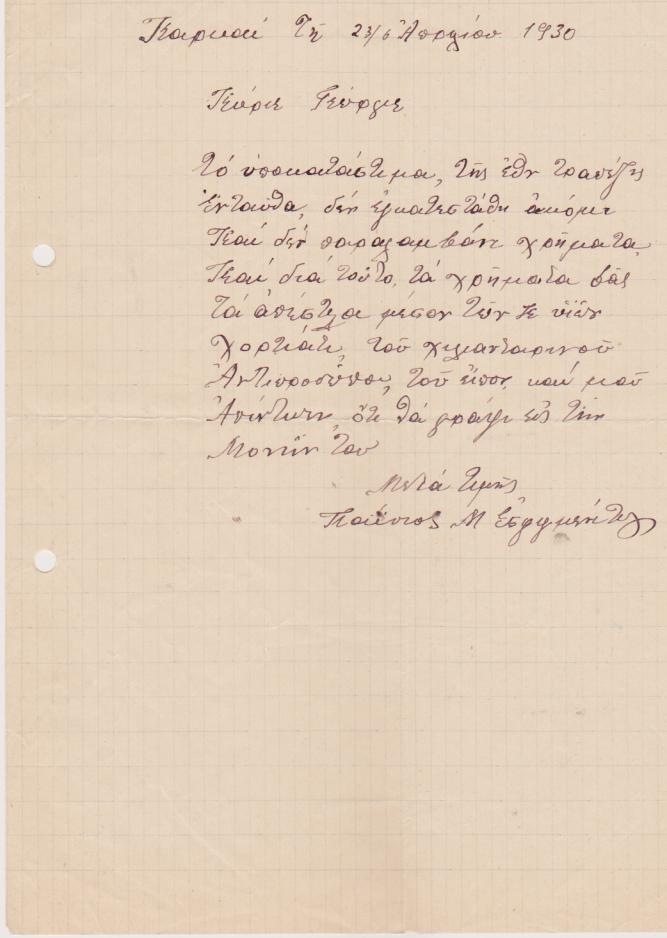 Καρυαί τῇ 23/6 Ἀπριλίου 1930
Κύριε Γεώργιε
Τό ὑποκατάστιμα, τῆς ἐθν τραπέζης
Ἐνταῦθα, δέν ἐγκατεστάθη ἀκόμι
Καί δέν παραλαμβάνι χρήματα,
Καί διά τοῦτο, τά χρήματα σᾶς
Τά ἀπέστιλα μέσον τῶν υἱῶν
Χορτιάτι, τοῦ χιλιανταρινοῦ
Ἀντιπροσόπου, τοῦ εἶπον, καί μοῦ
Ἀπίντισεν, ὅτι θά γράψι εἰς τήν
Μονήν του
Μετά τιμῆς
Παΐσιος Μ Ἐσφιγμενίτης